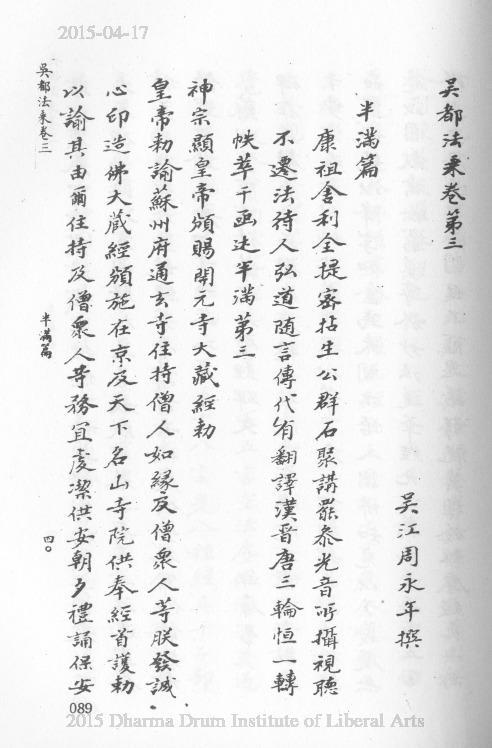 2015-04-17
吳都法乘卷第三
吳江周永年撰
半滿篇
康祖舍利全提密拈生公群石聚講罷參光音所攝視聽
不遷法待人弘道随言傳代有翻譯漢晉唐三輪恒一轉
帙莘千函述半滿第三
神宗顯皇帝頒賜開元寺大藏經勅
皇帝勅諭蘇州府通玄寺住持僧人如緣及僧衆人等朕發誠
心印造佛大藏經頒施在京及天下名山寺院供奉經首護勅
以諭其由爾住持及僧衆人等務宜虔潔供安朝夕禮誦保安
吳都法乘卷三
半滿篇
四〇
089
2015 Dharma Drum Institute of Liberal Arts